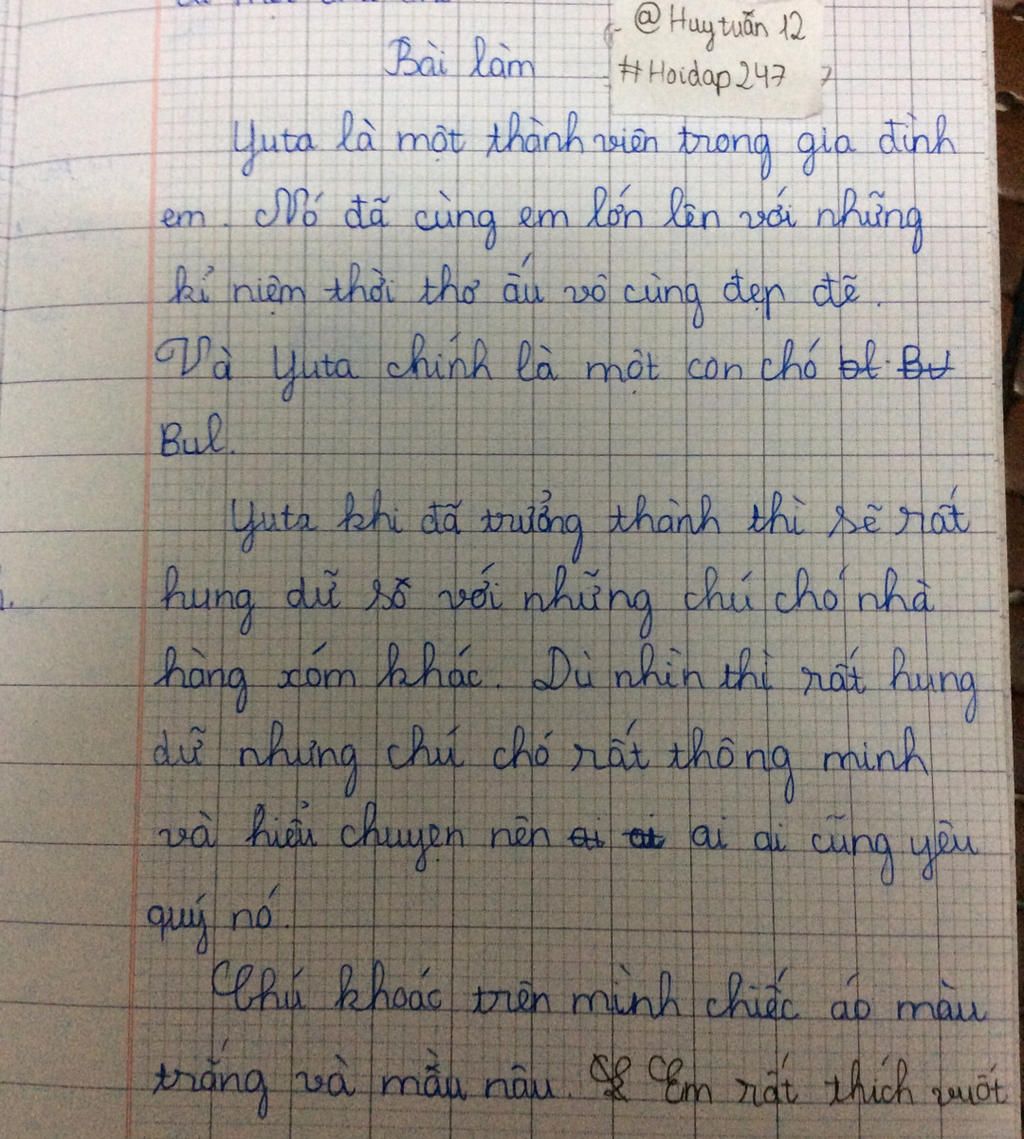 @Huytuấn 12
#Hoidap247
Bài làm
Yuta là một thành viên trong gia đình
em. Nó đã cùng em lớn lên với những
kỉ niệm thời thơ ấu vô cùng đẹp đẽ.
Và Yuta chính là một con chó bl Bu
Bul.
Yuta khi đã trưởng thành thì sẽ rất
hung dữ so với những chú chó nhà
hàng xóm khác. Dù nhìn thì rất hung
dữ nhưng chú chó rất thông minh
và hiểu chuyện nên ai ai ai ai cũng yêu
quý nó.
Chú khoác trên mình chiếc áo màu
trắng và mầu nâu. Em rất thích vuốt